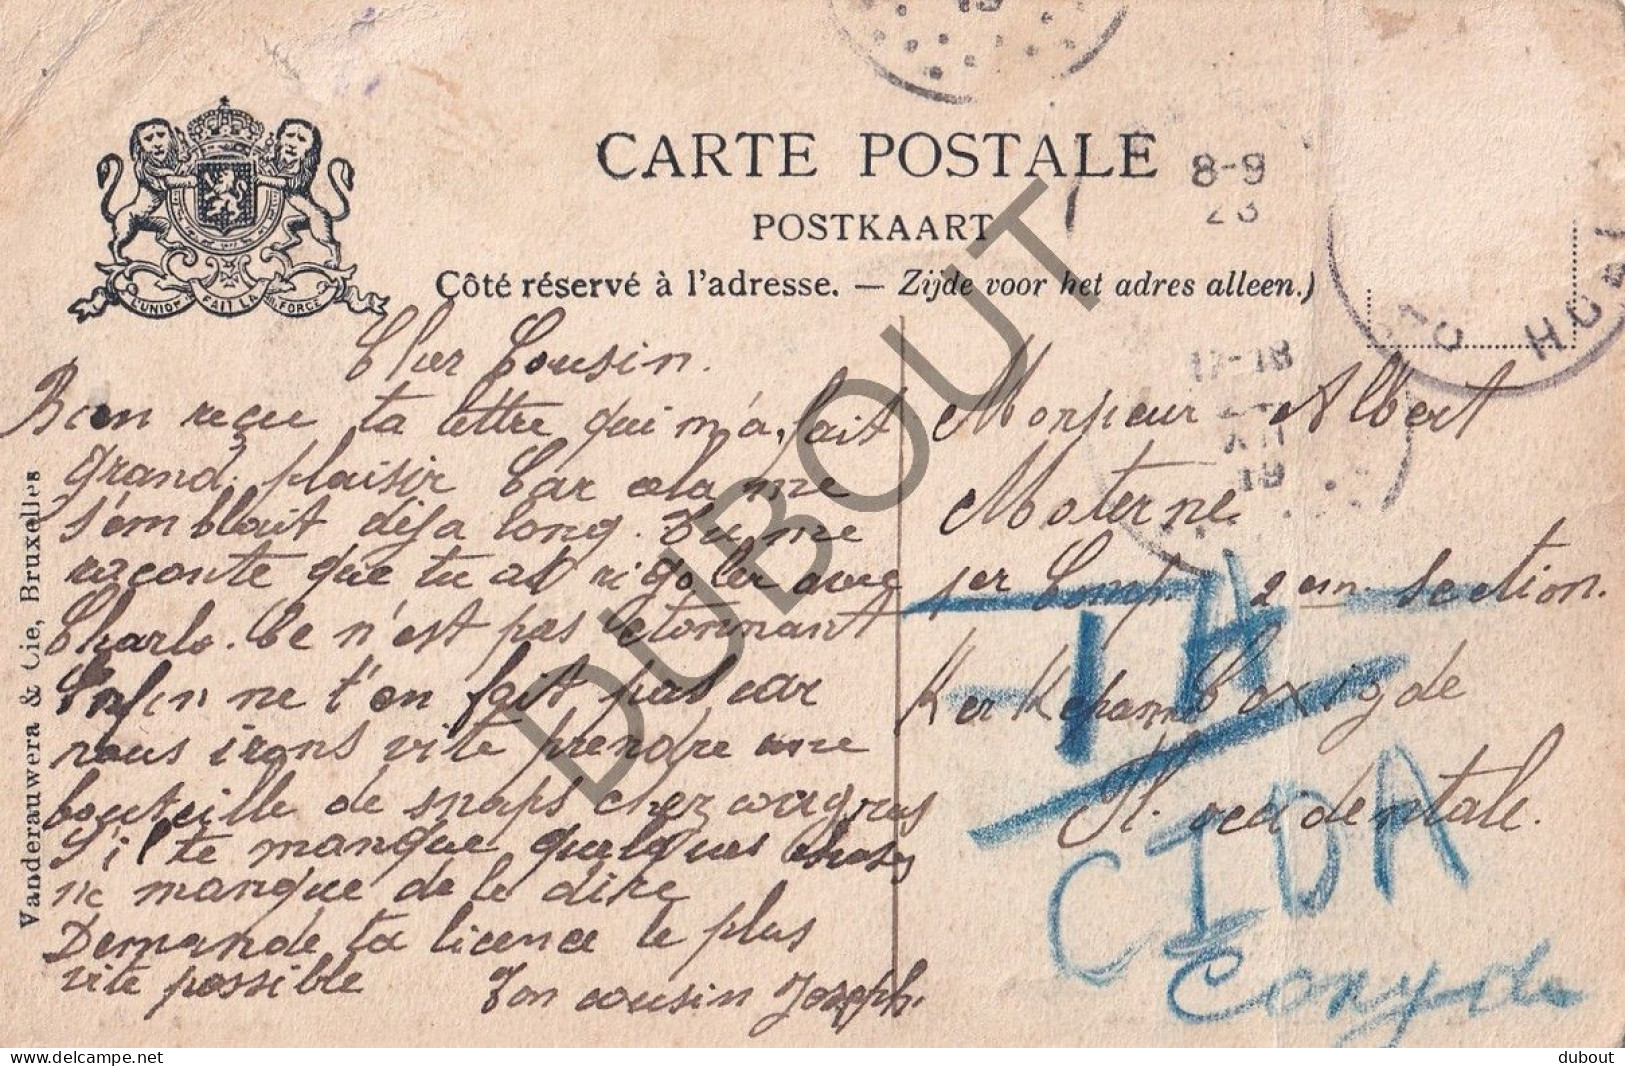 CARTE POSTALE
POSTKAART
Côté réservé à l'adresse. — Zijde voor het adres alleen.)
L'UNION FAIT LA FORCE
Vanderauwera & Cie, Bruxelles
Cher Cousin.
Bien reçue ta lettre qui m'a fait
grand plaisir Car cela me
s'emblait déja long. Tu me
raconte que tu as rigoler avec
Charlo. Ce n'est pas etonnant
Enfin ne t'en fait pas car
nous irons vite prendre une
bouteille de snaps chez
S'il te manque quelques choses
ne manque de le dire
Demande ta licence le plus
vite possible
Ton cousin Joseph.
Monsieur Albert
Materne
1er Comp. 2em section.
Fl. occidentale.
8-9
23
17-18
XII
19
TH
CIDA
DUBOUT
www.delcampe.net
dubout